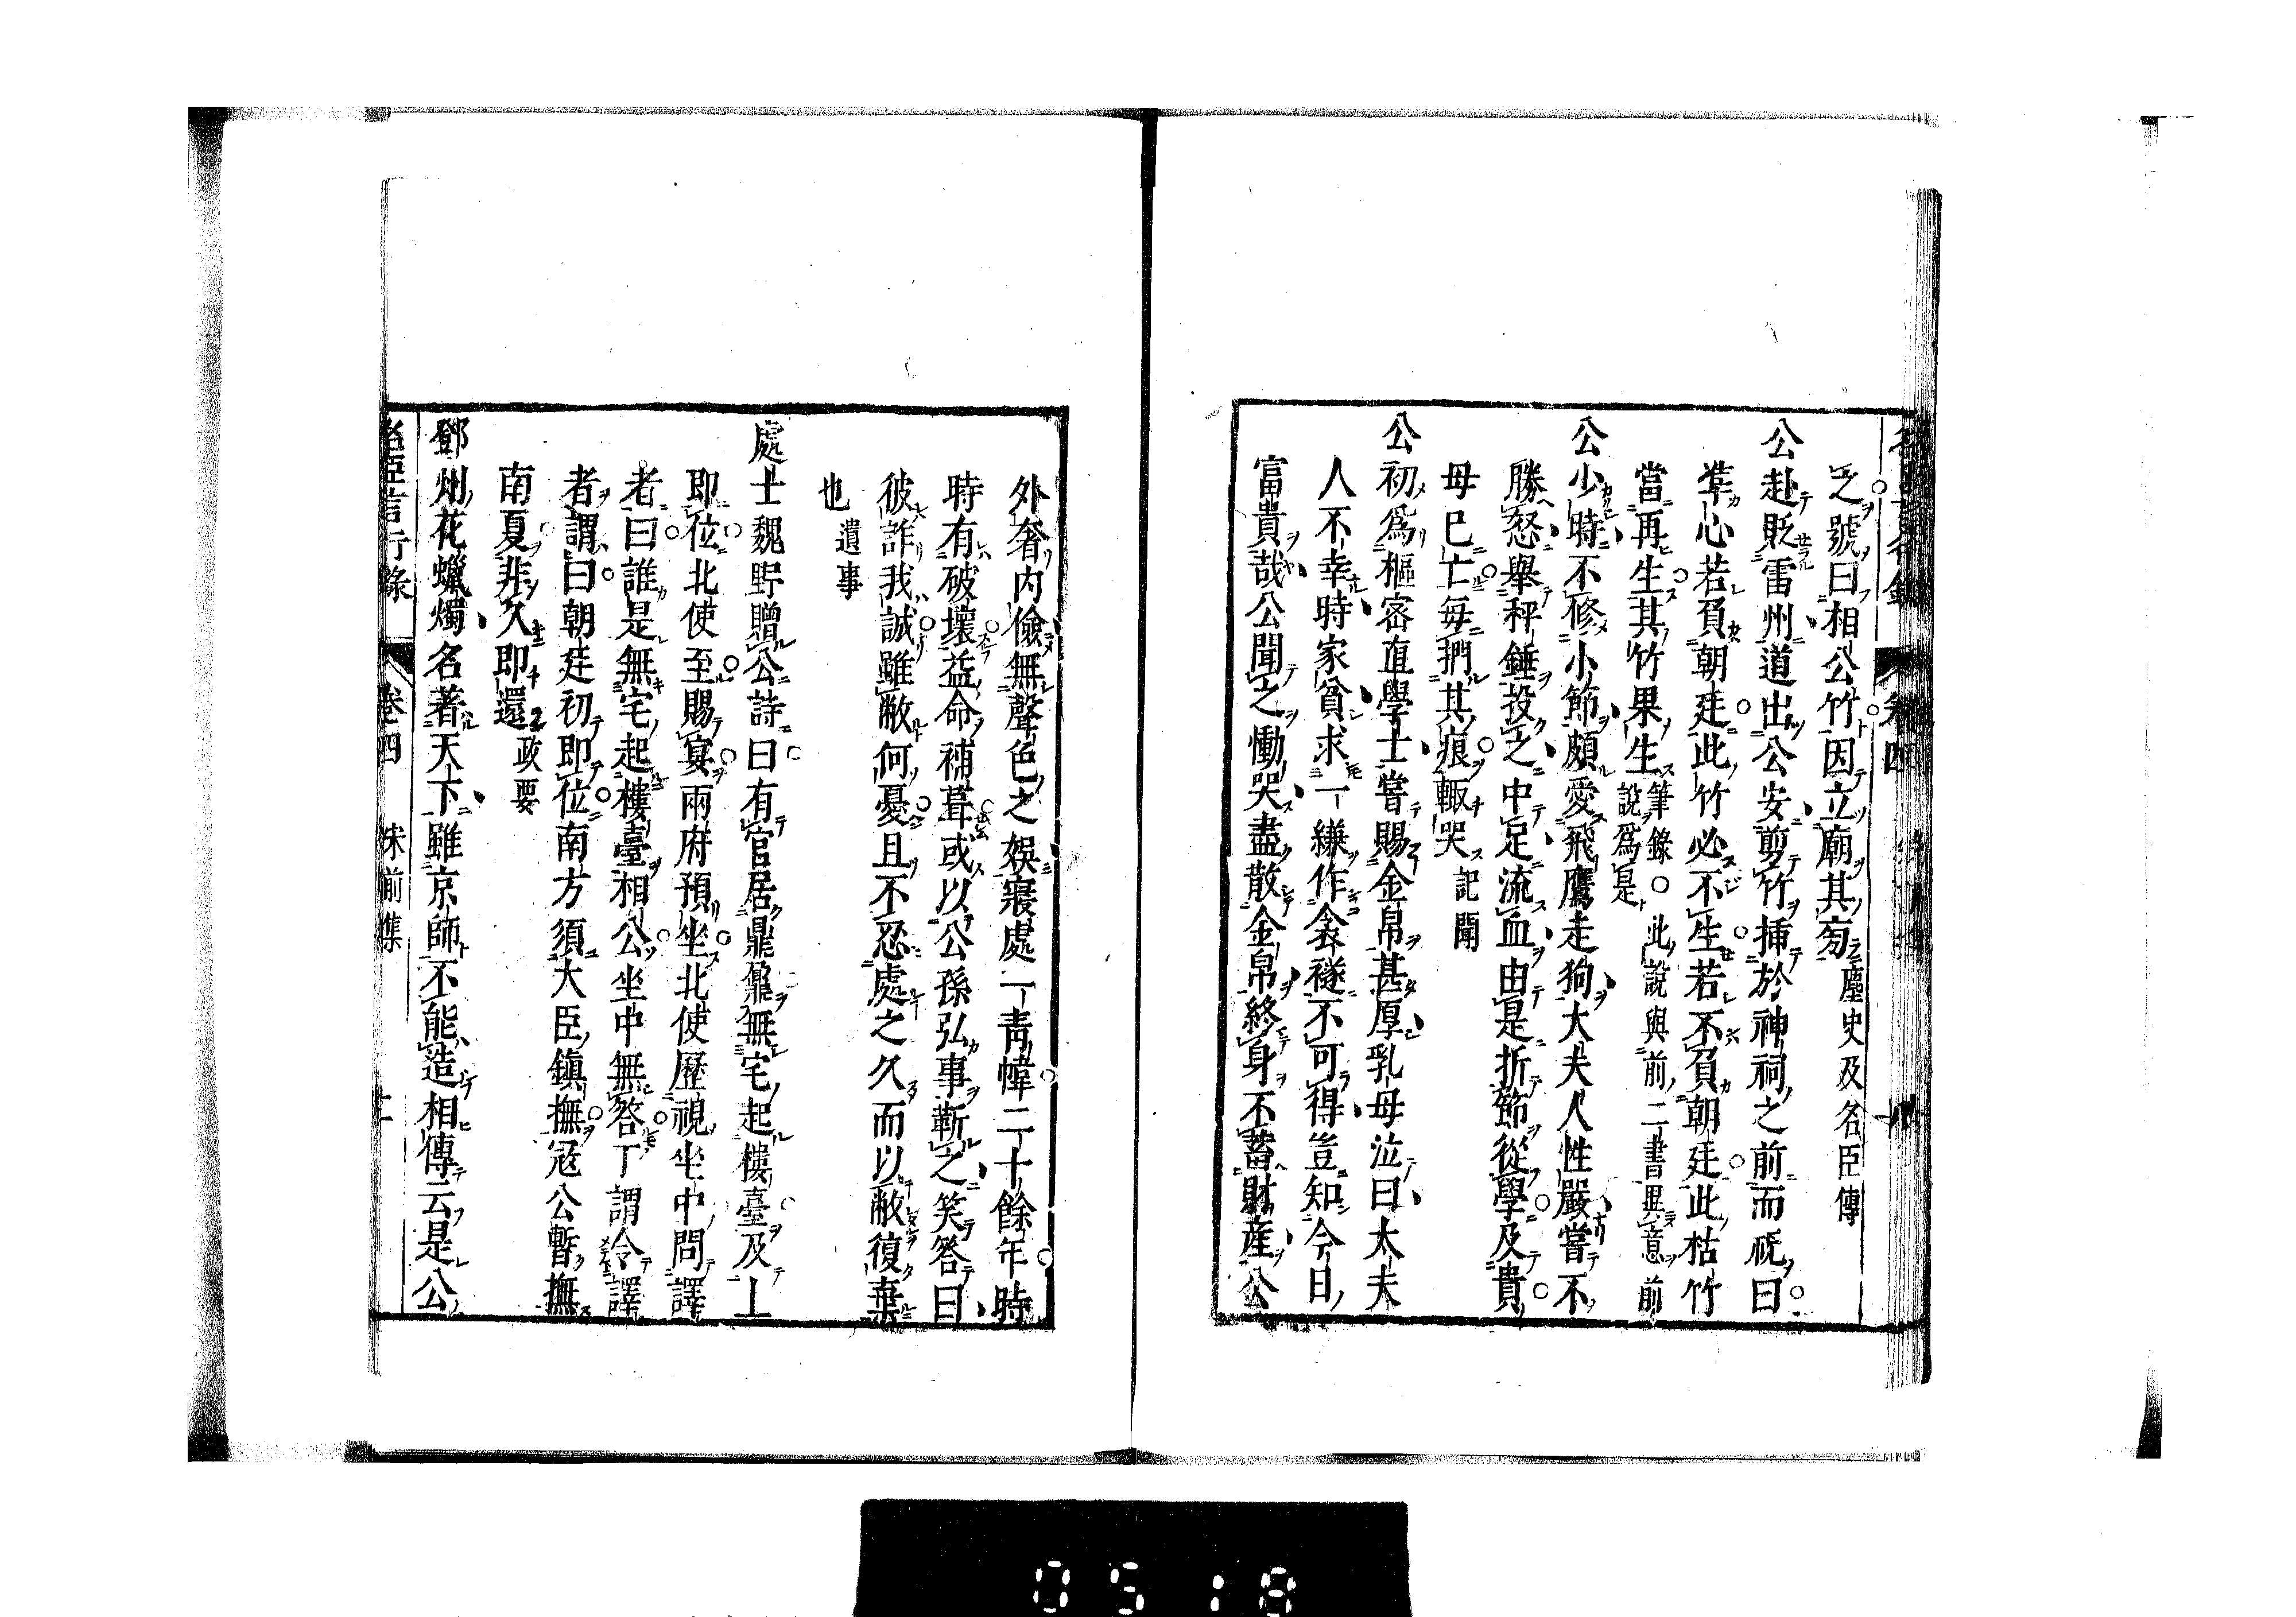 之號曰相公竹因立廟其旁 塵史及名臣傳
公赴貶雷州道出公安剪竹挿於神祠之前而祝曰
準心若負朝廷此竹必不生若不負朝廷此枯竹
當再生其竹果生 筆錄○此說與前二書異意前
說爲是
公少時不修小節頗愛飛鷹走狗大夫人性嚴嘗不
勝怒舉秤錘投之中足流血由是折節從學及貴
母已亡每捫其痕輒哭 記聞
公初爲樞密直學士嘗賜金帛甚厚乳母泣曰太夫
人不幸時家貧求一縑作衾襚不可得豈知今日
富貴哉公聞之慟哭盡散金帛終身不蓄財産公
外奢内儉無聲色之娯寢處一靑幃二十餘年時
時有破壞益命補葺或以公孫弘事靳之笑答曰
彼詐我誠雖敝何憂且不忍處之久而以敝復棄
也 遺事
處士魏野贈公詩曰有官居鼎鼐無宅起樓臺及上
即位北使至賜宴兩府預坐北使歷視坐中問譯
者曰誰是無宅起樓臺相公坐中無答丁謂令譯
者謂曰朝廷初即位南方須大臣鎭撫寇公暫撫
南夏非久即還 政要
鄧州花蠟燭名著天下雖京師不能造相傳云是公
名臣言行錄 卷四 宋前集
0518